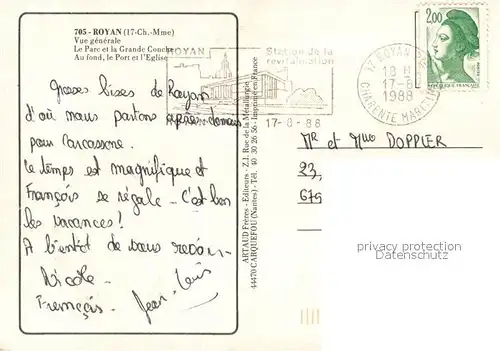 705 - ROYAN (17-Ch.-Mme)
Vue générale
Le Parc et la Grande Conche
Au fond, le Port et l'Eglise
Grosses bises de Royan
d'où nous partons après-demain
pour Carcassonne.
Le temps est magnifique et
François se régale - C'est bon
les vacances!
A bientôt de vous revoir -
Nicole
François. Jean-Louis
ROYAN
Station de la
revitalisation
17-8-88
ARTAUD Frères - Editeurs - Z.I. Rue de la Métallurgie
44470 CARQUEFOU (Nantes) - Tél. 40 30 26 56 - Imprimé en France
17 ROYAN
18 H
17-8
1988
CHARENTE MARITIME
2,00
REPUBLIQUE FRANÇAISE
Mr et Mme DOPPLER
23,
679
privacy protection
watermark